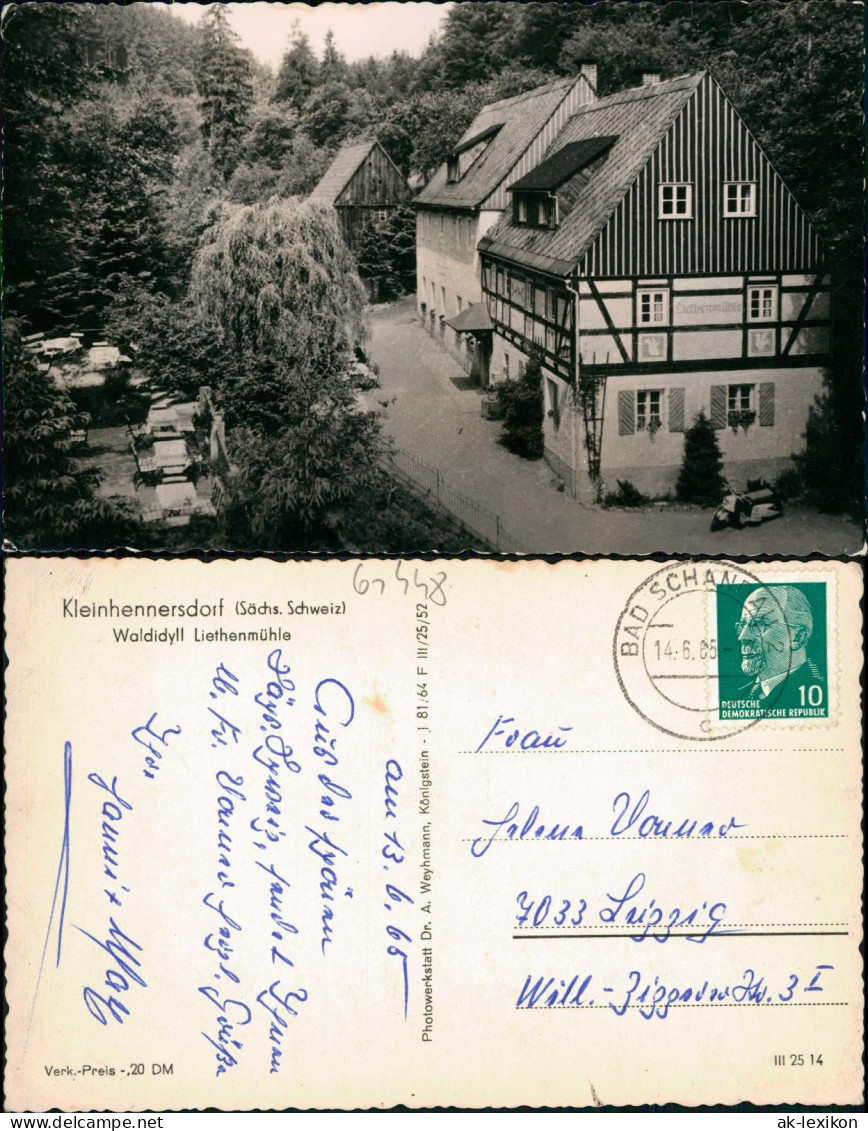 Liethenmühle
Kleinhennersdorf (Sächs. Schweiz)
Waldidyll Liethenmühle
61 448
am 13.6.65
Aus der schönen
Sächs. Schweiz, sendet Ihnen
lb. Fr. Wanner herzl. Grüße
Ihr
Photowerkstatt Dr. A. Weyhmann, Königstein - J 81/64 F III/25/52
Verk.-Preis -,20 DM
BAD SCHANDAU 2
14.6.65
c
DEUTSCHE
DEMOKRATISCHE REPUBLIK
10
Frau
Helene Wanner
7033 Leipzig
Will.-Zipperer Str. 3 I
III 25 14
© oldthing
ak-lexikon